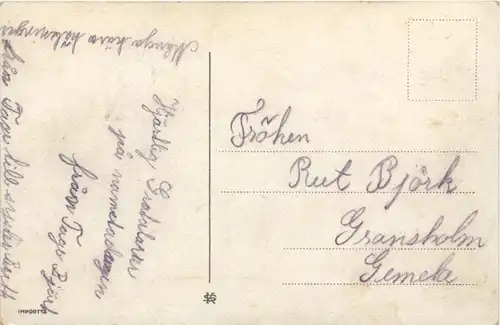 Många kära hälsningar
Hjärtlig Gratulation
på namnsdagen
från Tage Björk
från Tage till
Fröken
Rut Björk
Gransholm
Gemeda
IMPORTÉ